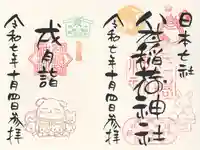 日本七社
稲荷神社
令和七年十月四日参拝
戌月詣
令和七年十月四日参拝